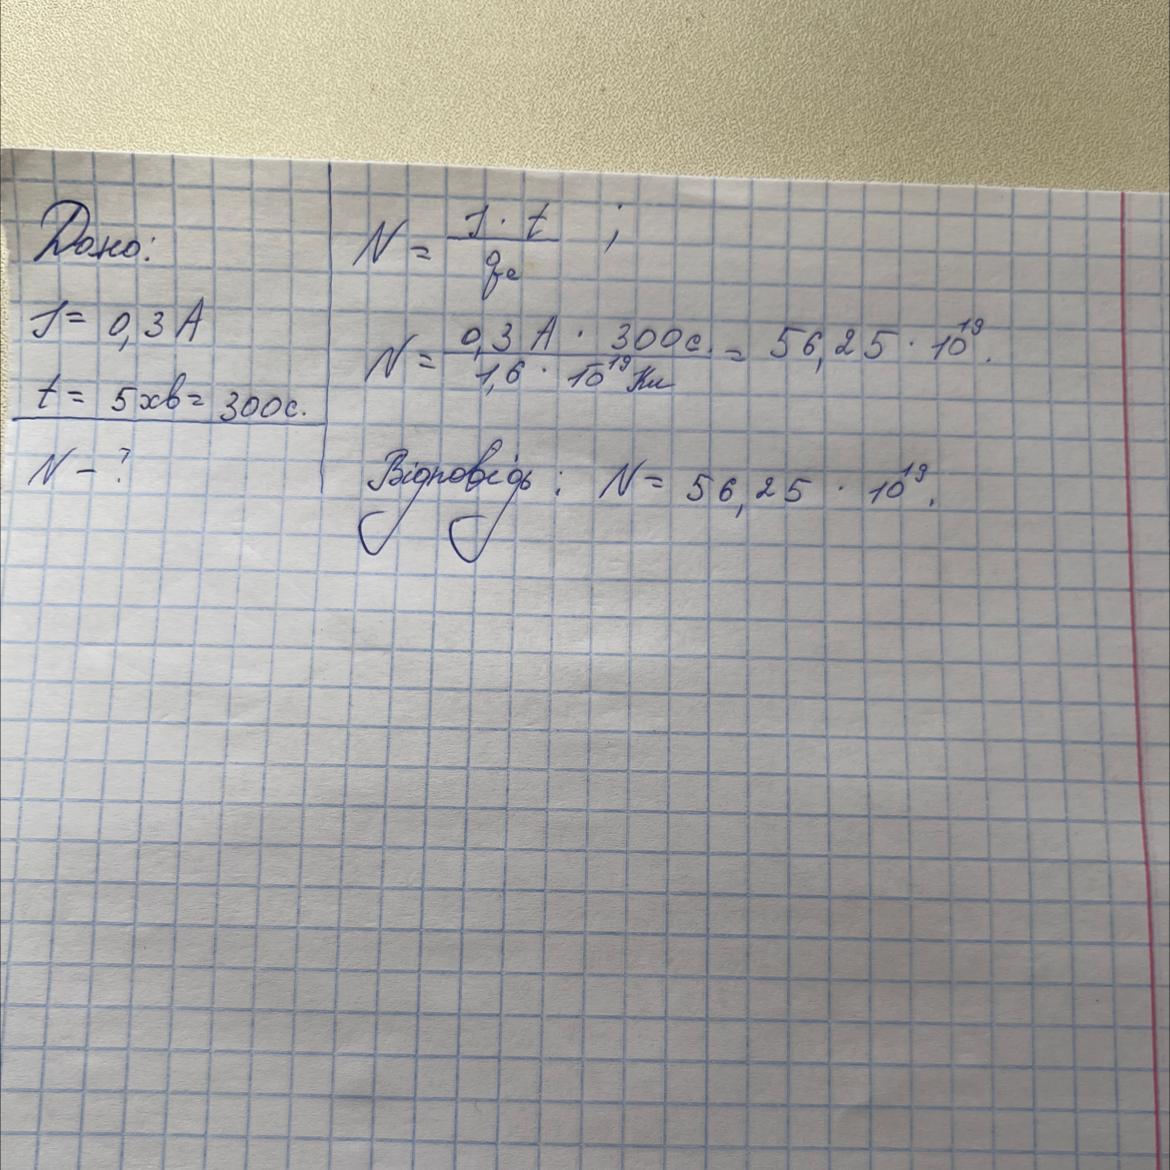 Дано:
I = 0,3 А
t = 5 хв = 300с.
N - ?
N = I · t / qe ;
N = 0,3 А · 300с. / 1,6 · 10¹⁹ Кл = 56,25 · 10¹⁹.
Відповідь: N = 56,25 · 10¹⁹.